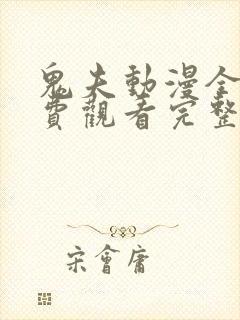 鬼夫動漫全
費觀看完整
宋會庸